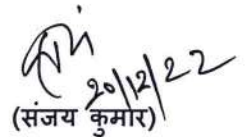 20/12/22
(संजय कुमार)